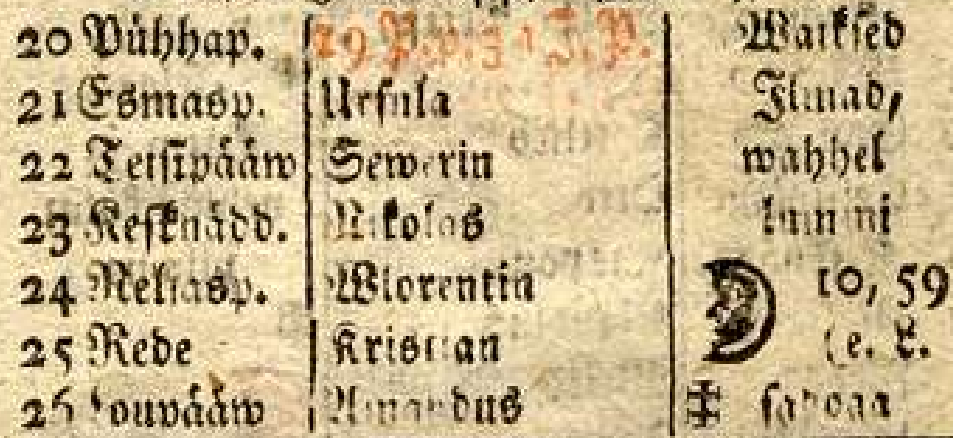 20 Pühhap. 29 P. p. 3 1 J. P. Waiksed
21 Esmasp. Ursula Ilmad,
22 Teisipääw Sewerin wahhel
23 Kesknädd. Nikolas
24 Neljasp. Wlorentin 10, 59
25 Rede Kristian e. L.
26 Loupääw Amandus ‡ saddaa